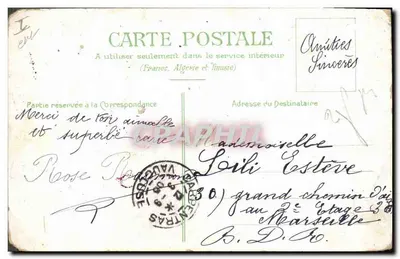 CARTE POSTALE
A utiliser seulement dans le service intérieur
(France, Algérie et Tunisie)
Amitiés
Sincères
Partie réservée à la Correspondance
Adresse du Destinataire
Merci de ton aimable
et superbe carte
Rose
Mademoiselle
Lili Estève
30, grand chemin d'
au 2e Etage
Marseille
B. D. R.
CARPENTRAS
VAUCLUSE